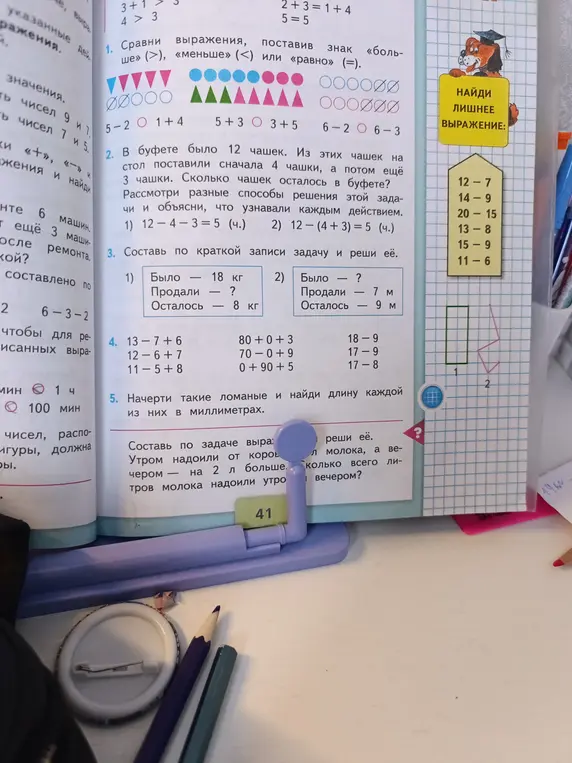 указанные дей-
ражения.
значения.
ть чисел 9 и 7,
ть чисел 7 и 5.
ки «+», «−» и
жения и найди
нте 6 машин,
т ещё 3 маши-
осле ремонта.
кой?
составлено по
2 6 − 3 − 2
чтобы для ре-
писанных выра-
мин 1 ч
100 мин
чисел, распо-
игуры, должна
ры.
3 + 1 > 3 2 + 3 = 1 + 4
4 > 3 5 = 5
1. Сравни выражения, поставив знак «боль-
ше» (>), «меньше» (<) или «равно» (=).
5 − 2 ○ 1 + 4 5 + 3 ○ 3 + 5 6 − 2 ○ 6 − 3
2. В буфете было 12 чашек. Из этих чашек на
стол поставили сначала 4 чашки, а потом ещё
3 чашки. Сколько чашек осталось в буфете?
Рассмотри разные способы решения этой зада-
чи и объясни, что узнавали каждым действием.
1) 12 − 4 − 3 = 5 (ч.) 2) 12 − (4 + 3) = 5 (ч.)
3. Составь по краткой записи задачу и реши её.
1) Было — 18 кг 2) Было — ?
Продали — ? Продали — 7 м
Осталось — 8 кг Осталось — 9 м
4. 13 − 7 + 6 80 + 0 + 3 18 − 9
12 − 6 + 7 70 − 0 + 9 17 − 9
11 − 5 + 8 0 + 90 + 5 17 − 8
5. Начерти такие ломаные и найди длину каждой
из них в миллиметрах.
Составь по задаче выра реши её.
Утром надоили от коров л молока, а ве-
чером — на 2 л больше. Сколько всего ли-
тров молока надоили утро вечером?
41
НАЙДИ
ЛИШНЕЕ
ВЫРАЖЕНИЕ:
12 − 7
14 − 9
20 − 15
13 − 8
15 − 9
11 − 6
1
2
?